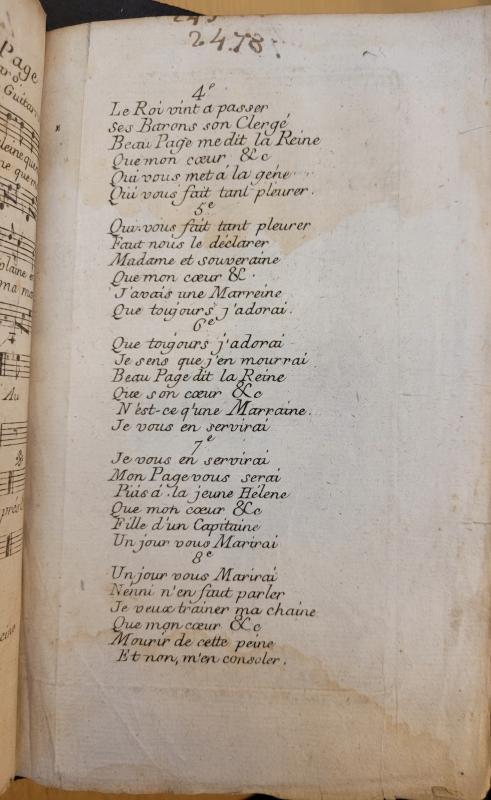 24.78
4e
Le Roi vint a passer
Ses Barons son Clergé
Beau Page me dit la Reine
Que mon cœur &c
Qui vous met á la géne
Qui vous fait tant pleurer.
5e
Qui vous fait tant pleurer
Faut nous le déclarer
Madame et souveraine
Que mon cœur &c.
J'avais une Marreine
Que toujours j'adorai.
6e
Que toujours j'adorai
Je sens que j'en mourrai
Beau Page dit la Reine
Que son cœur &c
N'est-ce q'une Marraine.
Je vous en servirai
7e
Je vous en servirai
Mon Page vous serai
Puis á la jeune Hélene
Que mon cœur &c
Fille d'un Capitaine
Un jour vous Marirai
8e
Un jour vous Marirai
Nénni n'en faut parler
Je veux trainer ma chaine
Que mon cœur &c
Mourir de cette peine
Et non, m'en consoler.
Page
Guitar
Au